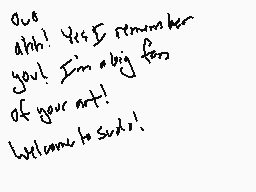 OwO
ahh! Yes I remember
you! I'm a big fan
of your art!
Welcome to sudo!